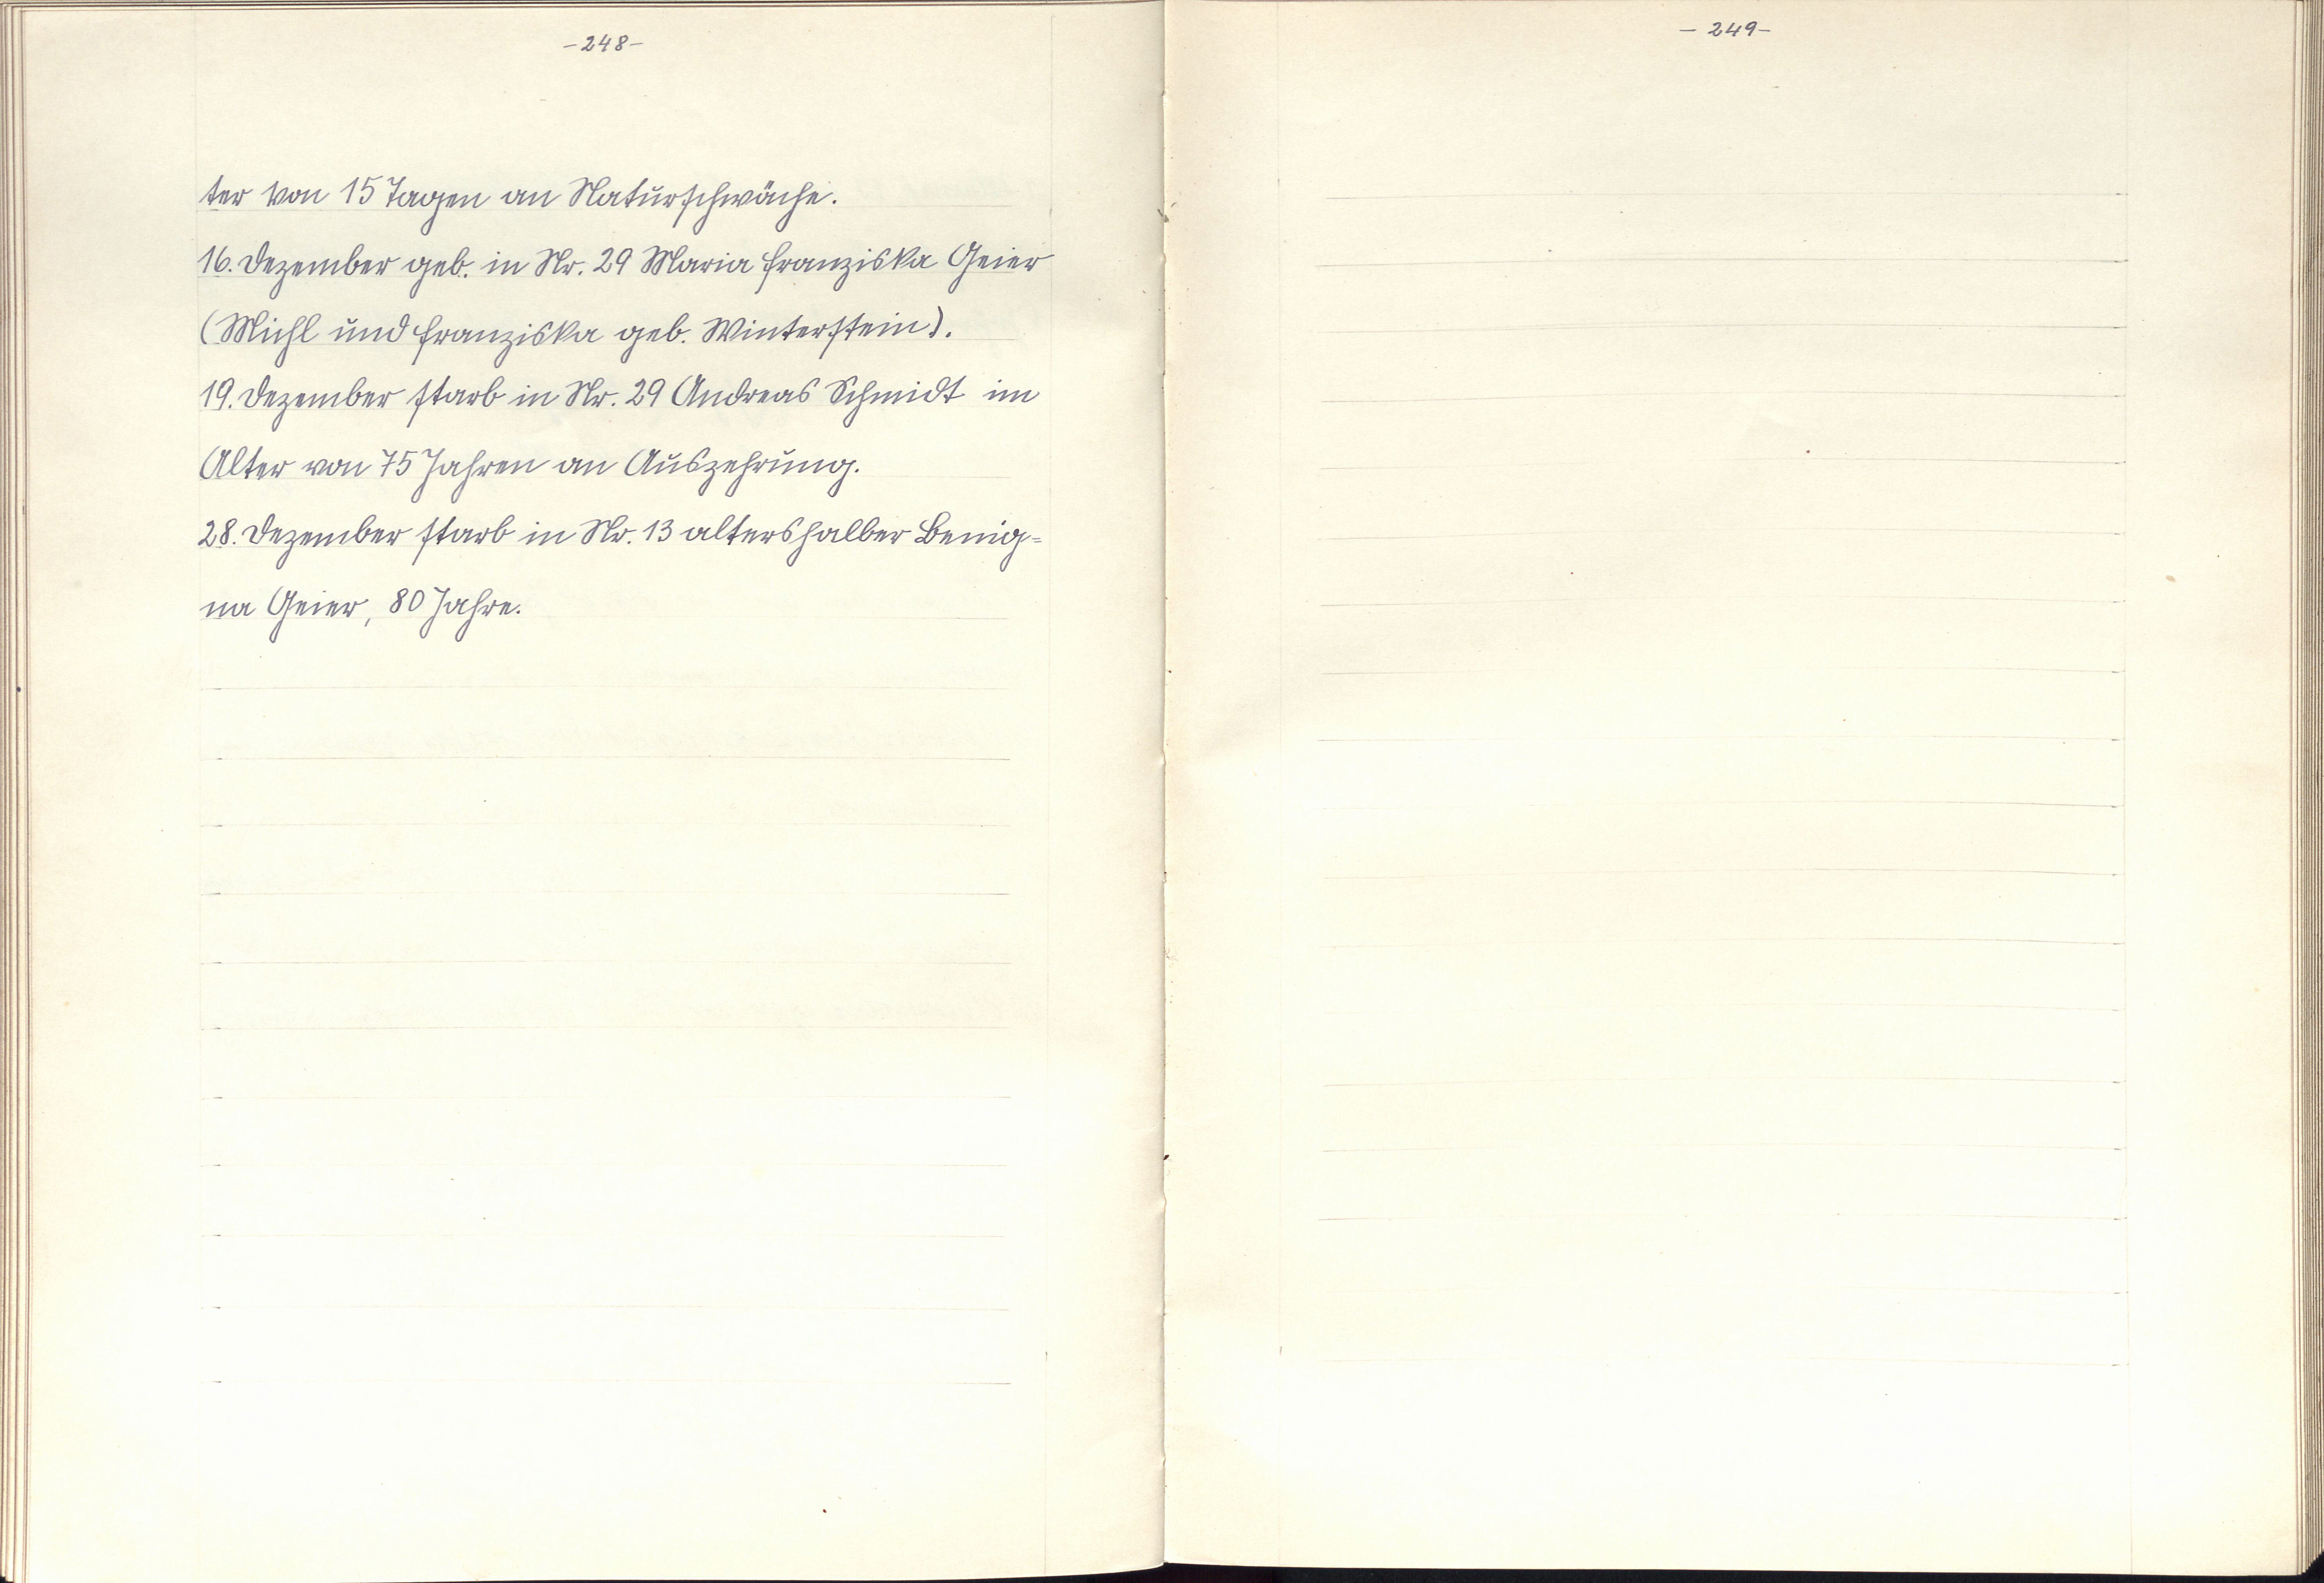 -248-
ter von 15 Tagen an Naturschwäche.
16. Dezember geb. in Nr. 29 Maria Franziska Geier
(Michl und Franziska geb. Winterstein).
19. Dezember starb in Nr. 29 Andreas Schmidt im
Alter von 75 Jahren an Auszehrung.
28. Dezember starb in Nr. 13 altershalber Benig=
na Geier, 80 Jahre.
- 249-